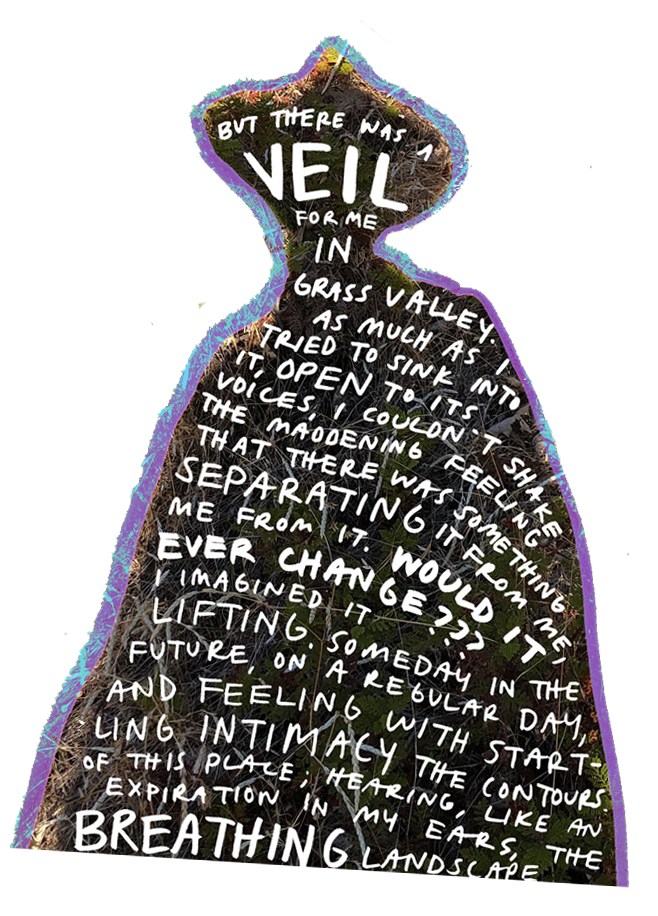 BUT THERE WAS A
VEIL
FOR ME
IN
GRASS VALLEY.
AS MUCH AS I
TRIED TO SINK INTO
IT, OPEN TO ITS
VOICES, I COULDN'T SHAKE
THE MADDENING FEELING
THAT THERE WAS SOMETHING
SEPARATING IT FROM ME,
ME FROM IT. WOULD IT
EVER CHANGE???
I IMAGINED IT
LIFTING. SOMEDAY IN THE
FUTURE, ON A REGULAR DAY,
AND FEELING WITH START-
LING INTIMACY THE CONTOURS
OF THIS PLACE; HEARING, LIKE AN
EXPIRATION IN MY EARS, THE
BREATHING LANDSCAPE